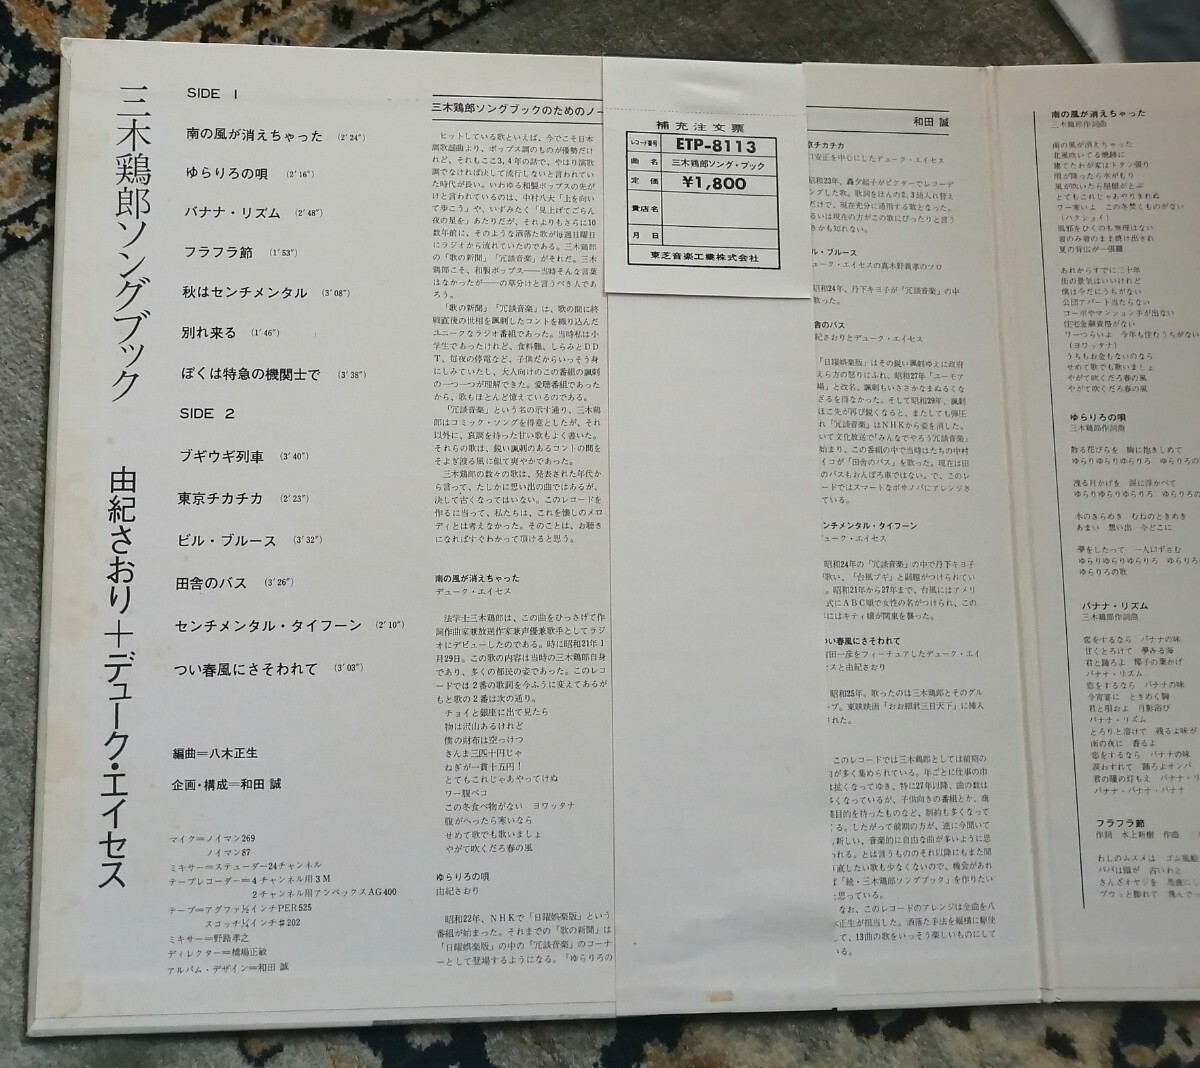 三木鶏郎ソングブック 由紀さおり＋デューク・エイセス
SIDE 1
南の風が消えちゃった (2′24″)
ゆらりろの唄 (2′16″)
バナナ・リズム (2′48″)
フラフラ節 (1′53″)
秋はセンチメンタル (3′08″)
別れ来る (1′46″)
ぼくは特急の機関士で (3′38″)
SIDE 2
ブギウギ列車 (3′40″)
東京チカチカ (2′23″)
ビル・ブルース (3′32″)
田舎のバス (3′26″)
センチメンタル・タイフーン (2′10″)
つい春風にさそわれて (3′03″)
編曲＝八木正生
企画・構成＝和田 誠
マイク＝ノイマン269
ノイマン87
ミキサー＝スチューダー24チャンネル
テープレコーダー＝4チャンネル用3M
2チャンネル用アンペックスAG400
テープ＝アグファ½インチPER525
スコッチ¼インチ＃202
ミキサー＝野路孝之
ディレクター＝橋場正敏
アルバム・デザイン＝和田 誠
三木鶏郎ソングブックのためのノー
ヒットしている歌といえば、今でこそ日本
調歌謡曲より、ポップス調のものが優勢だけ
れど、それもここ3,4年の話で、やはり演歌
調でなければ決して流行しないと言われてい
た時代が長い。いわゆる和製ポップスの先が
けと言われているのは、中村八大「上を向い
て歩こう」や、いずみたく「見上げてごらん
夜の星を」あたりだが、それよりもさらに10
数年前に、そのような洒落た歌が毎週日曜日
にラジオから流れていたのである。三木鶏郎
の「歌の新聞」「冗談音楽」がそれだ。三木
鶏郎こそ、和製ポップス――当時そんな言葉
はなかったが――の草分けと言うべき人であ
ろう。
「歌の新聞」「冗談音楽」は、歌の間に終
戦直後の世相を諷刺したコントを織り込んだ
ユニークなラジオ番組であった。当時私は小
学生であったけれど、食料難、しらみとDD
T、毎夜の停電など、子供だからいっそう身
にしみていたし、大人向けのこの番組の諷刺
の一つ一つが理解できた。愛聴番組であった
から、歌もほとんど憶えているのである。
「冗談音楽」という名の示す通り、三木鶏
郎はコミック・ソングを得意としたが、それ
以外に、哀調を持った甘い歌もよく書いた。
それらの歌は、鋭い諷刺のあるコントの間を
そよぎ渡る風に似て爽やかであった。
三木鶏郎の数々の歌は、発表された年代か
ら言って、たしかに思い出の曲ではあるが、
決して古くなってはいない。このレコードを
作るに当って、私たちは、これを懐しのメロ
ディとは考えなかった。そのことは、お聴き
になればすぐわかって頂けると思う。
南の風が消えちゃった
デューク・エイセス
法学士三木鶏郎は、この曲をひっさげて作
詞作曲家兼放送作家兼声優兼歌手としてラジ
オにデビューしたのである。時に昭和21年1
月29日。この歌の内容は当時の三木鶏郎自身
であり、多くの都民の姿であった。このレコ
ードでは2番の歌詞を今ふうに変えてあるが
もと歌の2番は次の通り。
チョイと銀座に出て見たら
物は沢山あるけれど
僕の財布は空っけつ
さんま三四十円じゃ
ねぎが一貫十五円！
とてもこれじゃあやってけぬ
ワー腹ペコ
この冬食べ物がない ヨワッタナ
腹がへったら寒いなら
せめて歌でも歌いましょ
やがて吹くだろ春の風
ゆらりろの唄
由紀さおり
昭和22年、NHKで「日曜娯楽版」という
番組が始まった。それまでの「歌の新聞」は
「日曜娯楽版」の中の「冗談音楽」のコーナ
ーとして登場するようになる。「ゆらりろの
補充注文票
レコード番号 ETP-8113
曲名 三木鶏郎ソング・ブック
定価 ¥1,800
貴店名
月日
東芝音楽工業株式会社
和田 誠
京チカチカ
安正を中心にしたデューク・エイセス
昭和23年、轟夕起子がビクターでレコーデ
ングした歌。歌詞をほんの2,3語入れ替え
だけで、現在充分に通用する歌となった。
るいは現在の方がこの歌にぴったりと言う
きかも知れない。
ル・ブルース
デューク・エイセスの真木野義孝のソロ
昭和24年、丹下キヨ子が「冗談音楽」の中
歌った。
舎のバス
紀さおりとデューク・エイセス
「日曜娯楽版」はその鋭い諷刺ゆえに政府
えら方の怒りにふれ、昭和27年「ユーモア
場」と改名、諷刺もいささかなまぬるくな
ざるを得なかった。そして昭和29年、諷刺
ほこ先が再び鋭くなると、またしても弾圧
れ「冗談音楽」はNHKから姿を消した。
いて文化放送で「みんなでやろう冗談音楽」
始まり、この番組の中で当時はたちの中村
イコが「田舎のバス」を歌った。現在は田
のバスもおんぼろ車ではない。で、このレ
ードではスマートなボサノバにアレンジさ
ている。
ンチメンタル・タイフーン
デューク・エイセス
昭和24年の「冗談音楽」の中で丹下キヨ子
歌い、「台風ブギ」と副題がつけられてい
。昭和21年から27年まで、台風にはアメリ
式にABC順で女性の名がつけられ、この
にはキティ嬢が関東を襲った。
つい春風にさそわれて
田一彦をフィーチュアしたデューク・エイ
セスと由紀さおり
昭和25年。歌ったのは三木鶏郎とそのグル
ープ。東映映画「おお細君三日天下」に挿入
された。
このレコードでは三木鶏郎としては前期の
が多く集められている。年ごとに仕事の巾
拡くなってゆき、特に27年以降、曲の数は
多くなっているが、子供向きの番組とか、商
業目的を持ったものなど、制約も多くなって
る。したがって前期の方が、逆に今聞いて
も新しい、音楽的に自由な曲が多いように思
われる。とは言うもののそれ以降にもまだ聞
直したい歌も少なくないので、機会があれ
ば「続・三木鶏郎ソングブック」を作りたい
と思っている。
なお、このレコードのアレンジは全曲を八
木正生が担当した。洒落た手法を縦横に駆使
して、13曲の歌をいっそう楽しいものにして
いる。
南の風が消えちゃった
三木鶏郎作詞曲
南の風が消えちゃった
北風吹いてる焼跡に
建てたわが家はトタン張り
雨が降ったら水がもり
風が吹いたら屋根がとぶ
とてもこれじゃあやりきれぬ
ワー寒いよ この冬焚くものがない
（ハクショイ）
風邪をひくのも無理はない
着のみ着のまま焼け出され
夏の背広が一張羅
あれからすでに二十年
街の景気はいいけれど
僕は今だにうちがない
公団アパート当たらない
コーポやマンション手が出ない
住宅金融資格がない
ワーつらいよ 今年も住むうちがない
（ヨワッタナ）
うちもお金もないのなら
せめて歌でも歌いましょ
やがて吹くだろ春の風
やがて吹くだろ春の風
ゆらりろの唄
三木鶏郎作詞曲
散る花びらを 胸に抱きしめて
ゆらりゆらりゆらりろ ゆらりろの
洩る月かげを 涙に浮かべて
ゆらりゆらりゆらりろ ゆらりろの
水のきらめき むねのときめき
あまい 想い出 今どこに
夢をしたって 一人口ずさむ
ゆらりゆらりゆらりろ ゆらりゆらり
ゆらりろの歌
バナナ・リズム
三木鶏郎作詞曲
恋をするなら バナナの味
甘くとろけて 夢みる海
君と踊ろよ 椰子の葉かげ
バナナ・リズム
恋をするなら バナナの味
今宵宴に ときめく胸
君と唄およ 月影浴び
バナナ・リズム
とろりと溶けて 残るよ味が
南の夜に 香るよ
恋をするなら バナナの味
涙わすれて 踊ろよサンバ
君の瞳の灯もえ バナナ・リ
バナナ・バナナ・バナナ
フラフラ節
作詞 水上新樹 作曲
わしのムスメは ゴム風船
パパは頭が 古いわと
さんざオヤジを 馬鹿にし
プウッと膨れて 飛んでっ